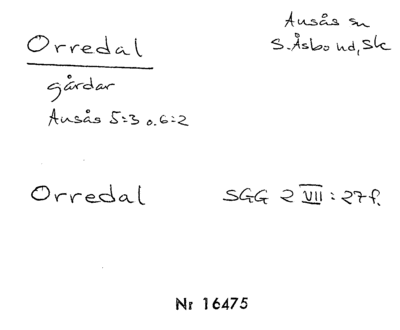 Orredal
Ansås sn
S. Åsbo hd, Sk
gårdar
Ansås 5:3 o. 6:2
Orredal
SGG 2 VII : 27 f.
Nr 16475